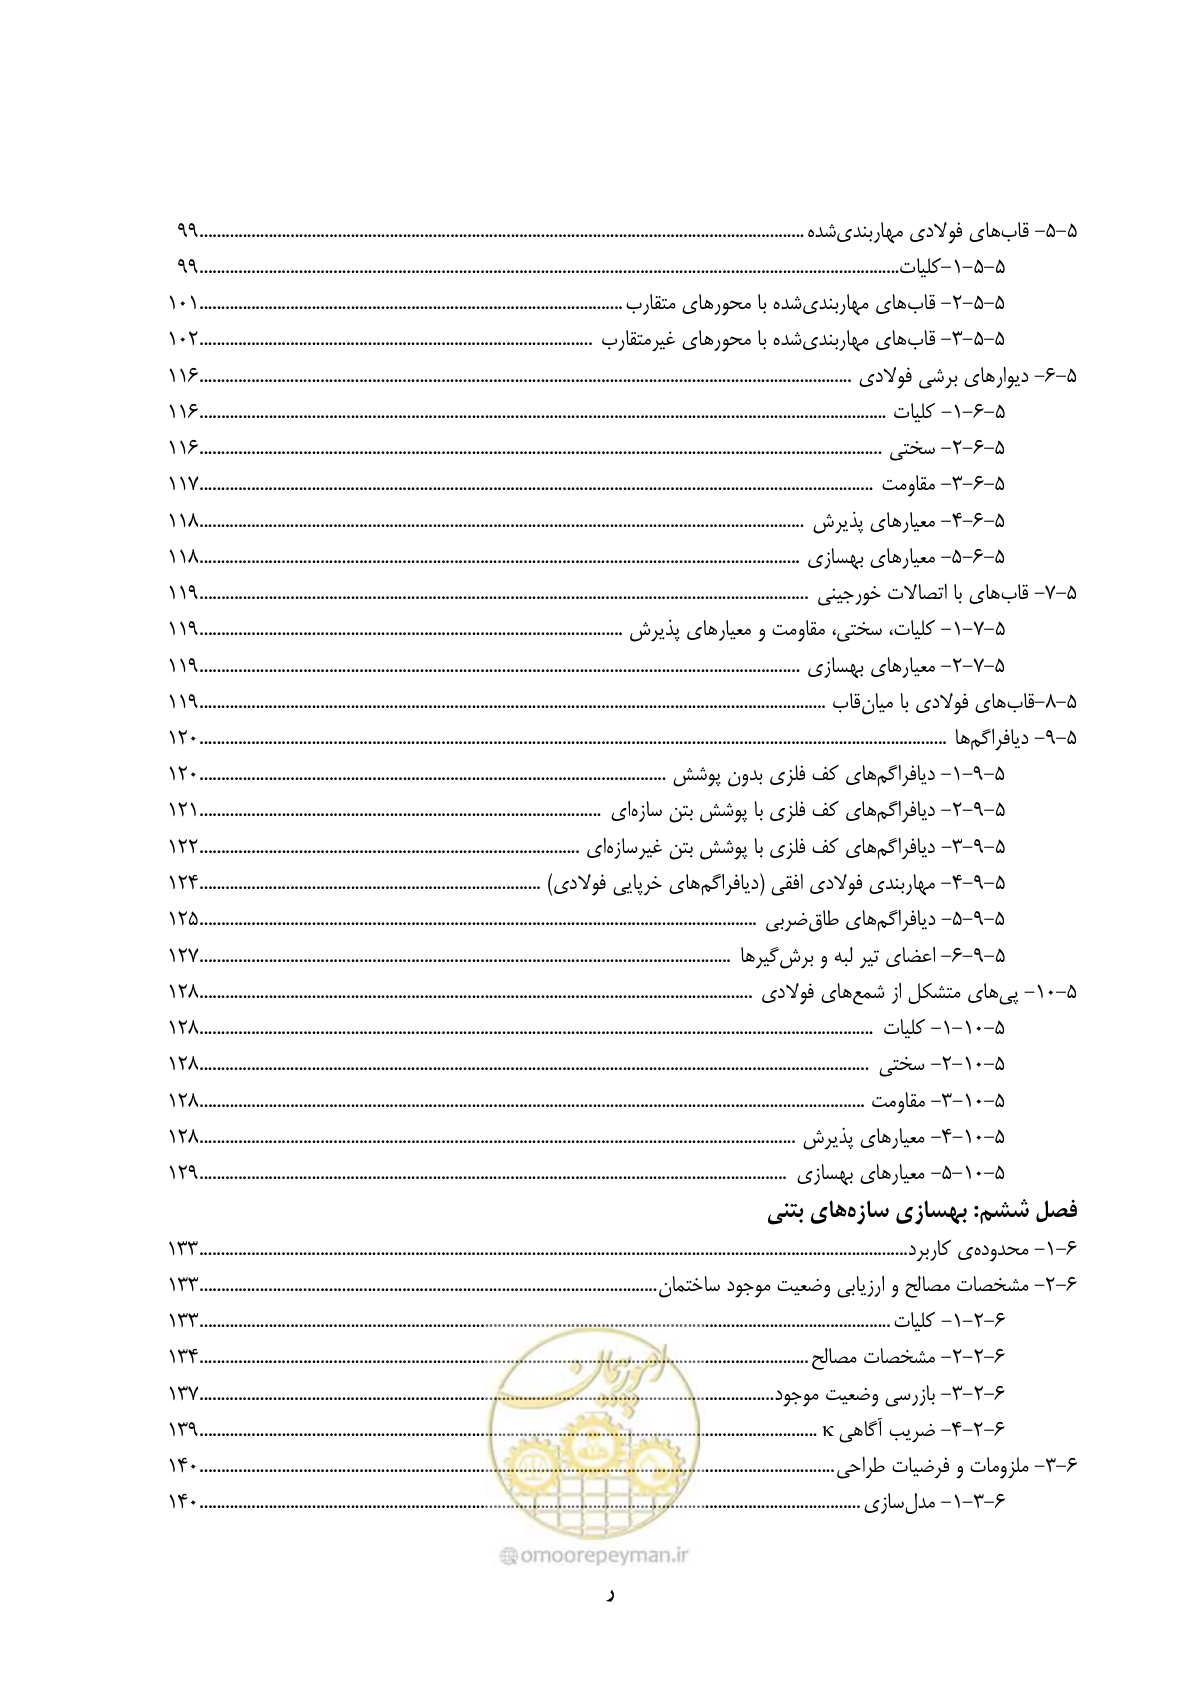 ۵-۵- قاب‌های فولادی مهاربندی‌شده ........ ۹۹
۵-۵-۱-کلیات ........ ۹۹
۵-۵-۲- قاب‌های مهاربندی‌شده با محورهای متقارب ........ ۱۰۱
۵-۵-۳- قاب‌های مهاربندی‌شده با محورهای غیرمتقارب ........ ۱۰۲
۵-۶- دیوارهای برشی فولادی ........ ۱۱۶
۵-۶-۱- کلیات ........ ۱۱۶
۵-۶-۲- سختی ........ ۱۱۶
۵-۶-۳- مقاومت ........ ۱۱۷
۵-۶-۴- معیارهای پذیرش ........ ۱۱۸
۵-۶-۵- معیارهای بهسازی ........ ۱۱۸
۵-۷- قاب‌های با اتصالات خورجینی ........ ۱۱۹
۵-۷-۱- کلیات، سختی، مقاومت و معیارهای پذیرش ........ ۱۱۹
۵-۷-۲- معیارهای بهسازی ........ ۱۱۹
۵-۸-قاب‌های فولادی با میان‌قاب ........ ۱۱۹
۵-۹- دیافراگم‌ها ........ ۱۲۰
۵-۹-۱- دیافراگم‌های کف فلزی بدون پوشش ........ ۱۲۰
۵-۹-۲- دیافراگم‌های کف فلزی با پوشش بتن سازه‌ای ........ ۱۲۱
۵-۹-۳- دیافراگم‌های کف فلزی با پوشش بتن غیرسازه‌ای ........ ۱۲۲
۵-۹-۴- مهاربندی فولادی افقی (دیافراگم‌های خرپایی فولادی) ........ ۱۲۴
۵-۹-۵- دیافراگم‌های طاق‌ضربی ........ ۱۲۵
۵-۹-۶- اعضای تیر لبه و برش‌گیرها ........ ۱۲۷
۵-۱۰- پی‌های متشکل از شمع‌های فولادی ........ ۱۲۸
۵-۱۰-۱- کلیات ........ ۱۲۸
۵-۱۰-۲- سختی ........ ۱۲۸
۵-۱۰-۳- مقاومت ........ ۱۲۸
۵-۱۰-۴- معیارهای پذیرش ........ ۱۲۸
۵-۱۰-۵- معیارهای بهسازی ........ ۱۲۹
فصل ششم: بهسازی سازه‌های بتنی
۶-۱- محدوده‌ی کاربرد ........ ۱۳۳
۶-۲- مشخصات مصالح و ارزیابی وضعیت موجود ساختمان ........ ۱۳۳
۶-۲-۱- کلیات ........ ۱۳۳
۶-۲-۲- مشخصات مصالح ........ ۱۳۴
۶-۲-۳- بازرسی وضعیت موجود ........ ۱۳۷
۶-۲-۴- ضریب آگاهی κ ........ ۱۳۹
۶-۳- ملزومات و فرضیات طراحی ........ ۱۴۰
۶-۳-۱- مدل‌سازی ........ ۱۴۰
امور پیمان
@omoorepeyman.ir
ر